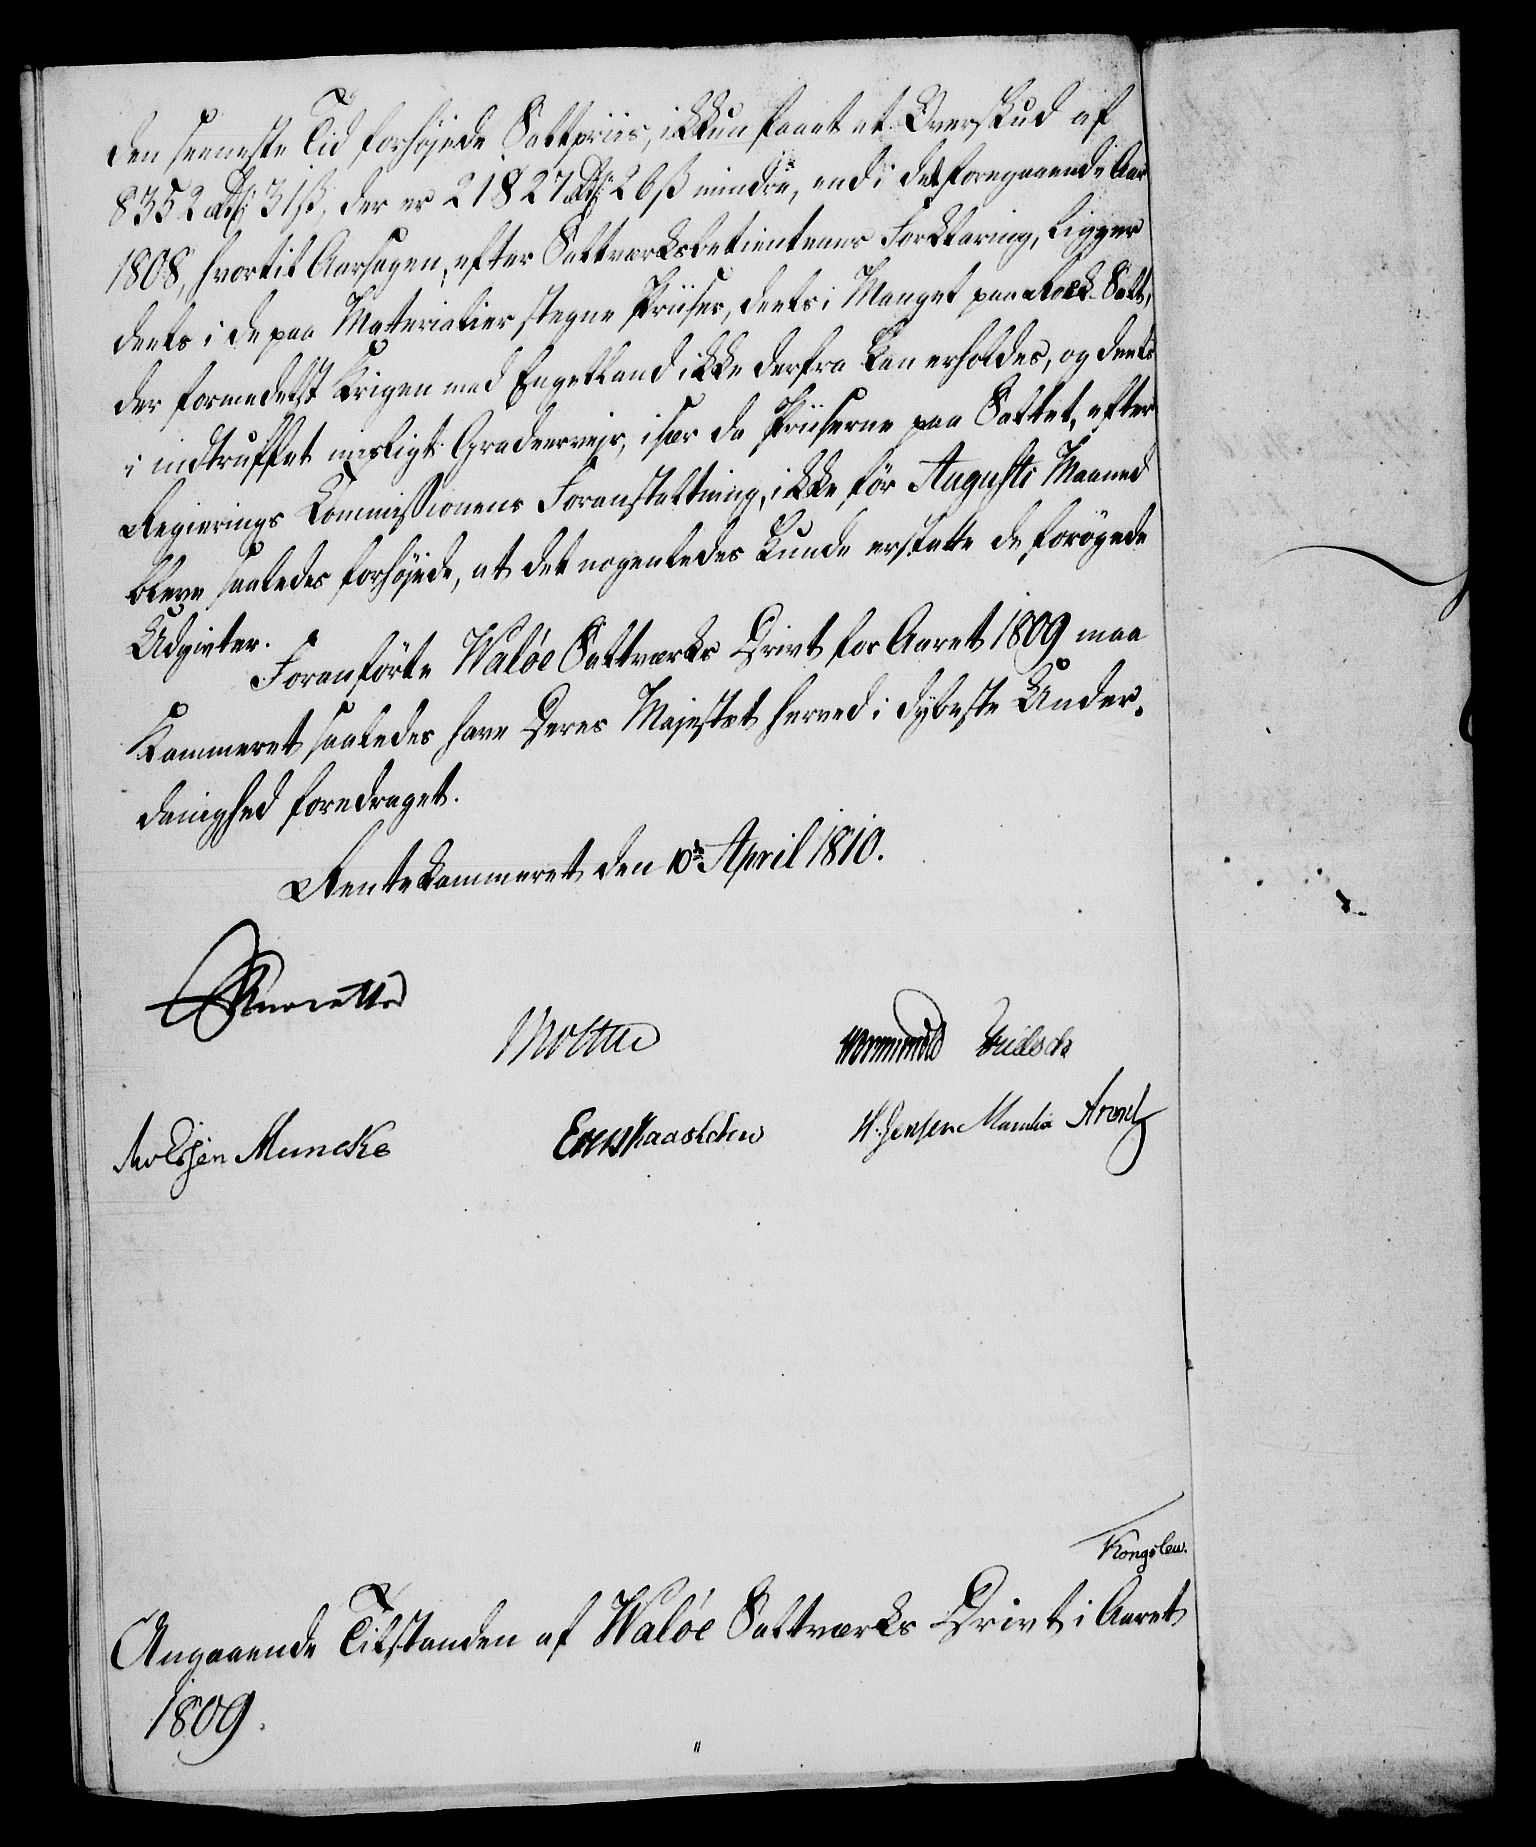 den seeneste Tid forhøjede Saltpriis, ikkun havt et Overskud af
8352 Rd 31 ß, der er 21827 Rd 26 ß mindre, end i det foregaaende Aar
1808, hvortil Aarsagen, efter Saltværksbetientenes Forklaring, ligger
deels i de paa Materialier stegne Priiser, deels i Mangel paa Rock-Salt,
der formedelst Krigen med Engelland ikke derfra kan erholdes, og deels
i indtruffet misligt Gradeerveir, især da Priiserne paa Saltet, efter
Regierings Commissionens Foranstaltning, ikke før Augusti Maaned
bleve saaledes forhøjede, at det nogenledes kunde erstatte de forøgede
Udgivter.
Foranførte Waløe Saltværks Drivt for Aaret 1809 maa
Kammeret saaledes have Deres Majestæt herved i dybeste Under-
danighed foredraget.
Rentekammeret den 10de April 1810.
Moltke Wormskiold
Knudsen Muncke H. Jensen Monrad Arentz
Kongslew.
Angaaende Tilstanden af Waløe Saltværks Drivt i Aaret
1809.